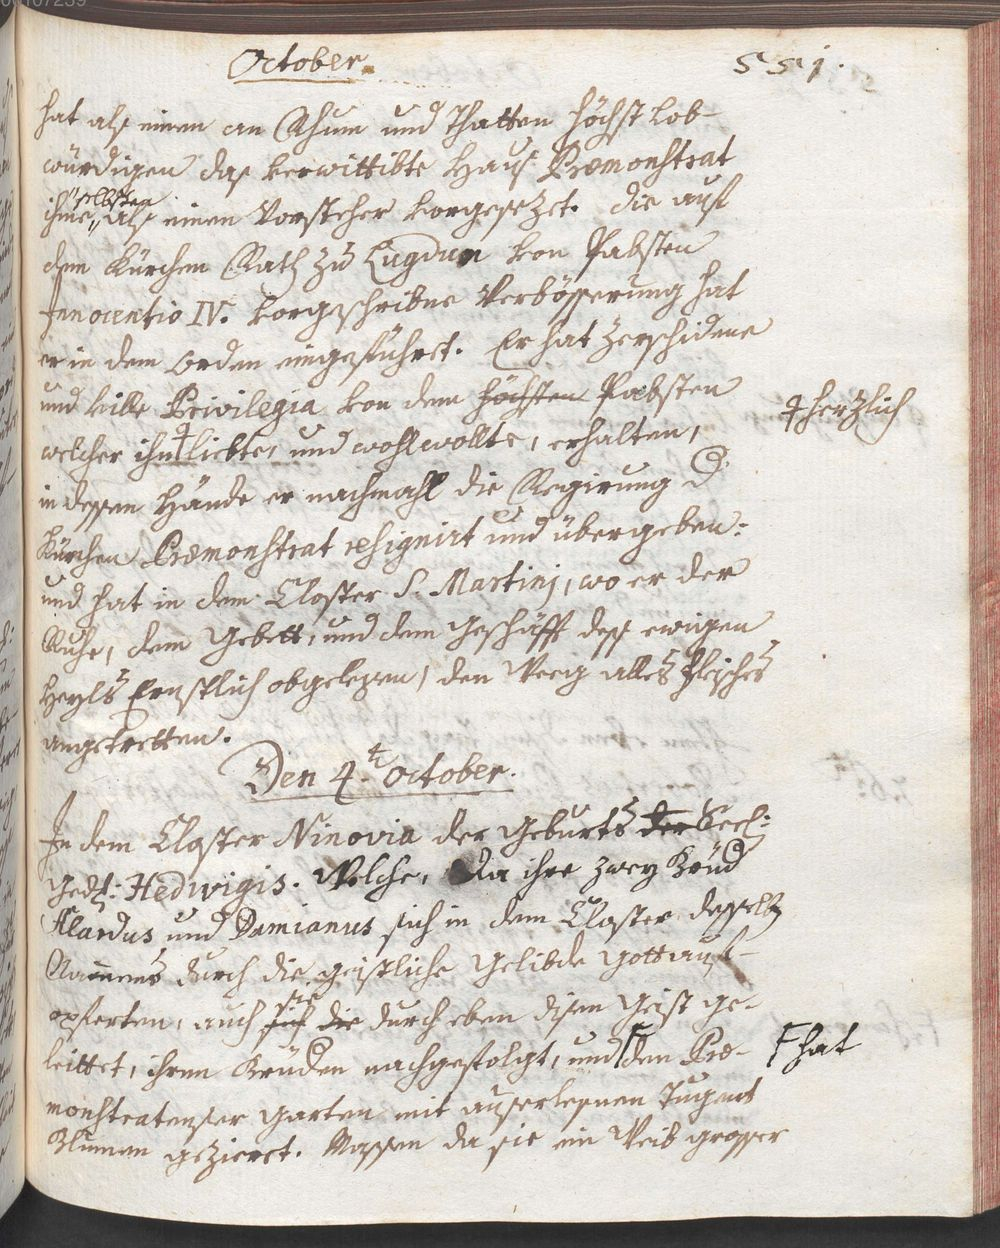 October.
551.
hat alß einen an Ruhm und Thatten höchst Lob-
würdigen daß verwittibte Hauß Præmonstrat
selbsten
ihme, alß einen Vorsteher vorgesezet. Die auß
dem Kürchen Rath zu Lugdun von Pabsten
Innocentio IV. vorgeschribne Verbösserung hat
er in dem Orden eingeführet. Er hat zerschidene
und ville Privilegia von dem höchsten Pabsten
welcher ihn ‡ liebte, und wohl wollte, erhalten,
‡ herzlich
in dessen Hände er nachmahl die Regirung d.
Kürchen Præmonstrat resignirt und übergeben:
und hat in dem Closter S. Martinj, wo er der
Ruhe, dem Gebett, und dem Geschäfft deß ewigen
Heyls Ernstlich obgelegen, den Weeg alles Fleisches
angetretten.
Den 4.t October.
In dem Closter Ninovia der Geburts der Seel:
Ged: Hedwigis. Welche, da ihre zwey Brüd
Alardus und Damianus sich in dem Closter desselb
Nammens durch die geistliche Gelibde Gott auf-
sie
opferten, auch sich die durch eben disen Geist ge-
leittet, ihren Brüdern nachgefolgt, und F den Præ-
F hat
monstratenser Garten mit außerlesnen Tugent
Blumen gezieret. Massen da sie ein Weib grosser